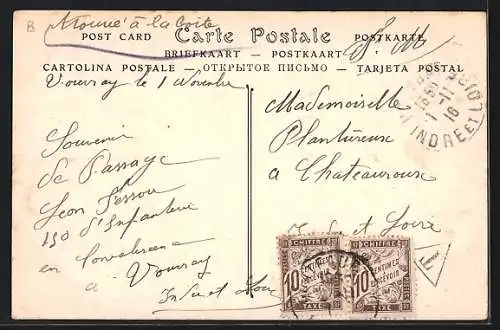 Trouvé à la boîte
B
Carte Postale
POST CARD
POSTKARTE
BRIEFKAART - POSTKAART
F. M
CARTOLINA POSTALE - ОТКРЫТОЕ ПИСЬМО - TARJETA POSTAL
Vouvray le 1 Novembre
Souvenir
de Passage
Léon
150 d'Infanterie
en
à Vouvray
Indre et Loire
Mademoiselle
Plantureux
a Chateauroux
Indre et Loire
1-11
16
INDRE ET
CHIFFRE
10
CENTIMES
À PERCEVOIR
TAXE
CHIFFRE
10
CENTIMES
À PERCEVOIR
TAXE
T